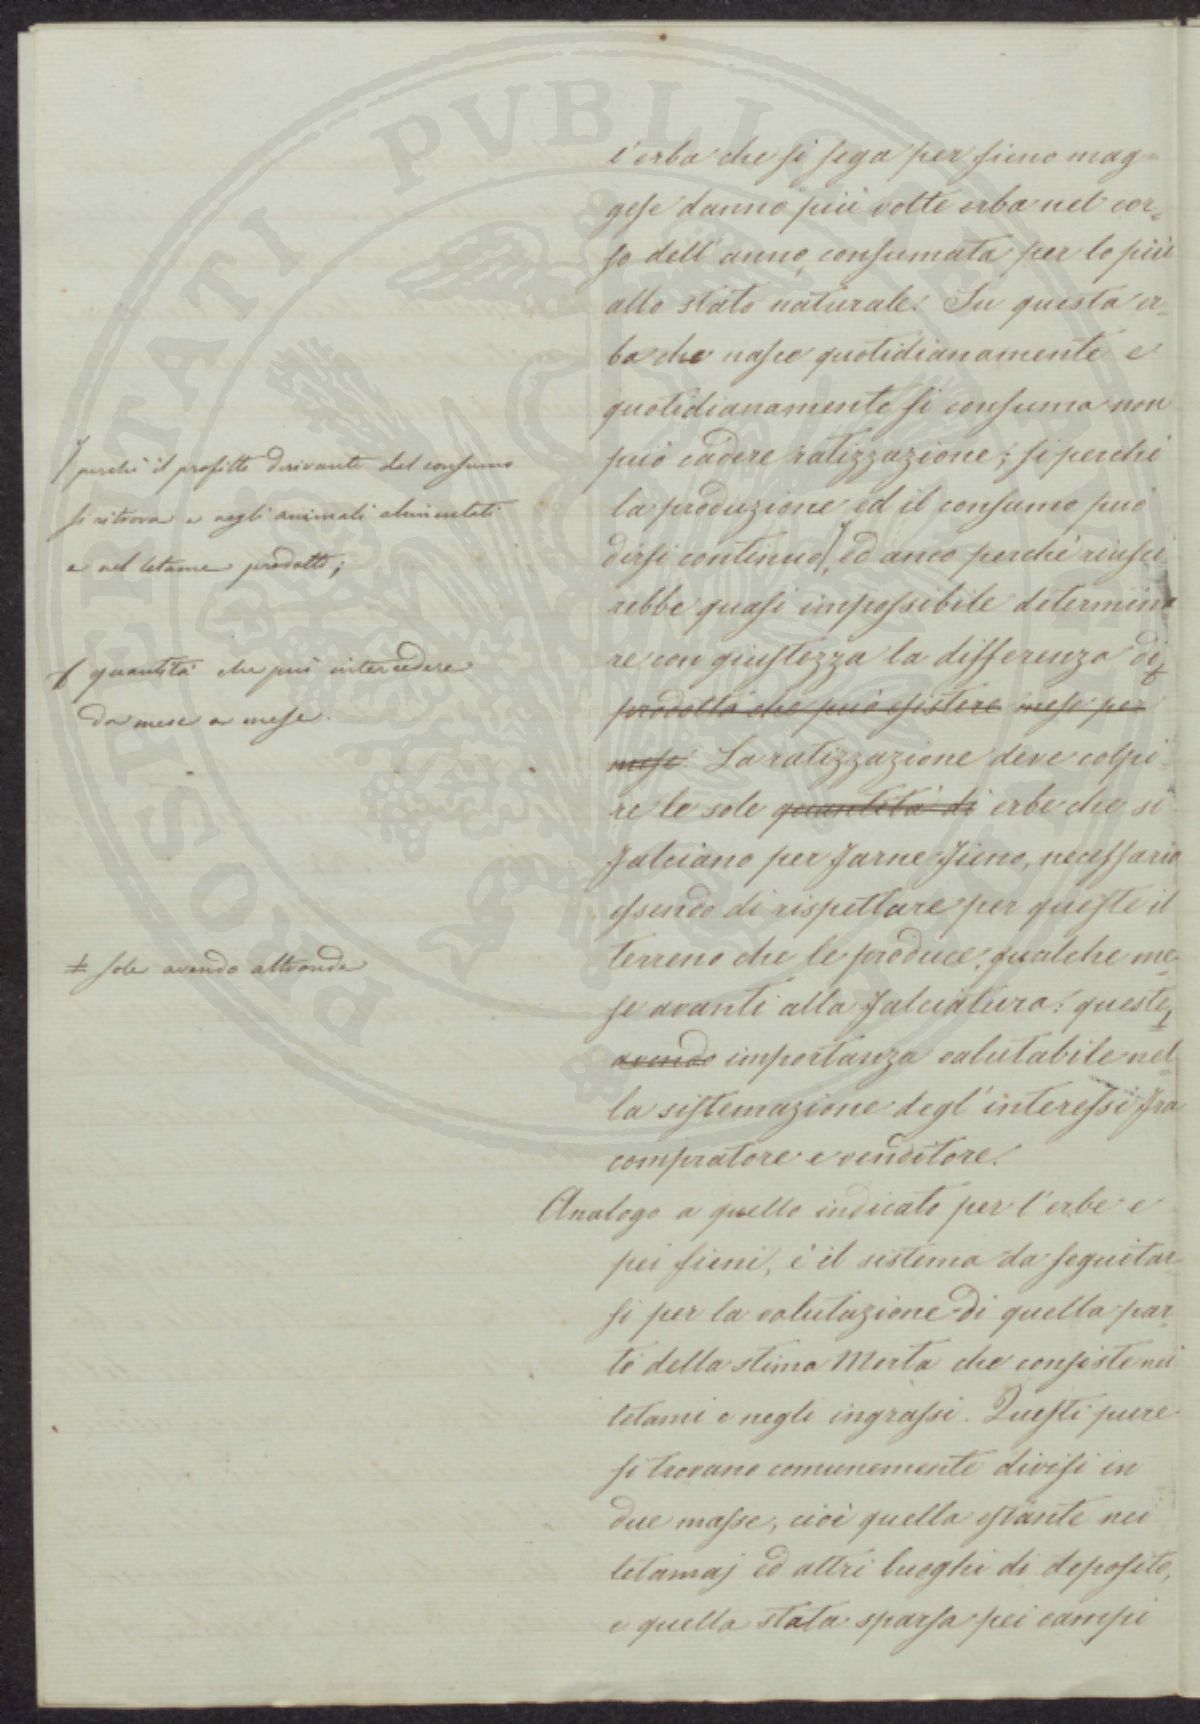 l'erba che si sega per fieno mag=
gese danno più volte erba nel cor-
so dell'anno, consumata per lo più
allo stato naturale. Su questa er-
ba che nasce quotidianamente e
quotidianamente si consuma non
può cadere ratizzazione; si perché
la produzione ed il consumo può
dirsi continuo, ed anco perché riusci
rebbe quasi impossibile determina
re con giustezza la differenza di
prodotto che può esistere mese per
mese. La ratizzazione deve colpi-
re le sole quantità di erbe che si
falciano per farne fieno, necessario
essendo di rispettare per queste il
terreno che le produce, qualche me-
se avanti alla falciatura: queste
avendo importanza valutabile nel-
la sistemazione degl'interessi fra
compratore e venditore.
Analogo a quello indicato per l'erbe e
pei fieni, è il sistema da seguitar-
si per la valutazione di quella par-
te della stima Morta che consiste nei
letami e negli ingrassi. Questi pure
si trovano comunemente divisi in
due masse, cioè quella estante nei
letamaj ed altri luoghi di deposito,
e quella stata sparsa pei campi
perché il profitto derivante dal consumo
si ritrova e negli animali alimentati
e nel letame prodotto;
quantità che può intercedere
da mese a mese.
+ sole avendo altronde
PROSPERITATI PVBLICAE